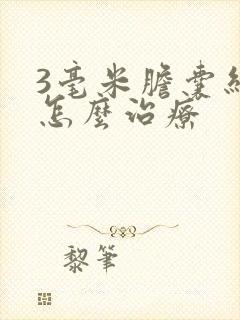 3毫米膽囊結
怎麼治療
黎筆